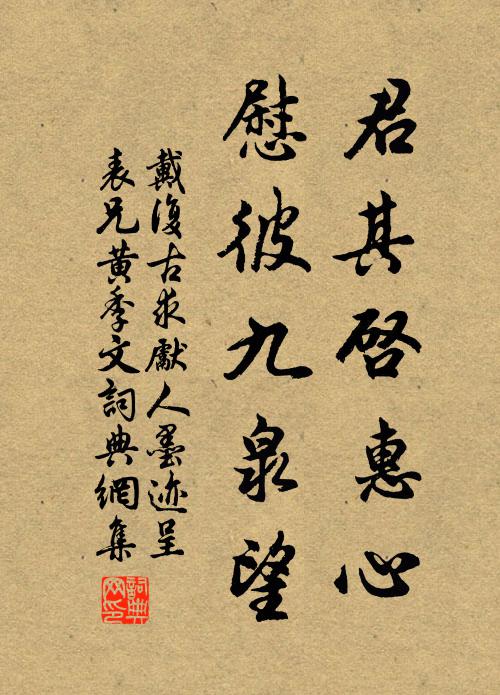 君其啓惠心
慰彼九泉望
戴復古求獻人墨迹呈
表兄黄季文詞典網集
詞典网印